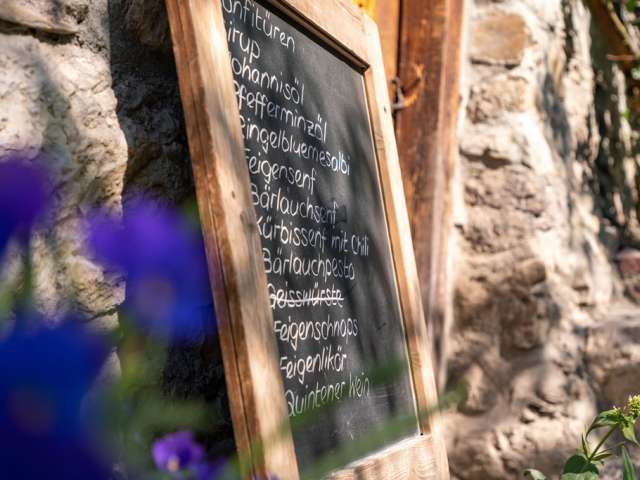 onfitüren
irup
Johannisöl
Pfefferminzöl
Ringelbluemesalbi
Feigensenf
Bärlauchsenf
Kürbissenf mit Chili
Bärlauchpesto
Geisswürste
Feigenschnaps
Feigenlikör
Quintener Wein